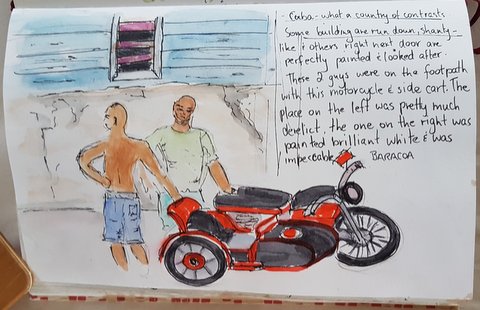 - Cuba - what a country of contrasts
Some building are run down, shanty-
like & others right next door are
perfectly painted & looked after.
These 2 guys were on the footpath
with this motorcycle & side cart. The
place on the left was pretty much
derelict, the one on the right was
painted brilliant white & was
impeccable BARACOA